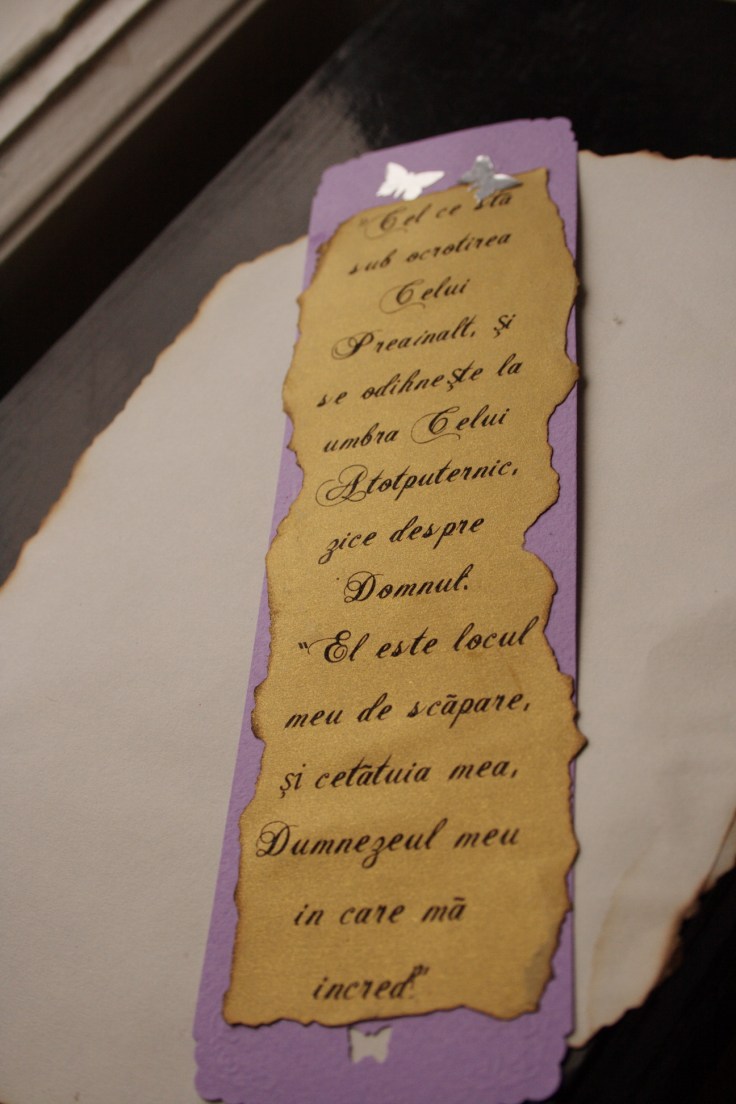 "Cel ce sta
sub ocrotirea
Celui
Preainalt, şi
se odihneşte la
umbra Celui
Atotputernic,
zice despre
Domnul:
"El este locul
meu de scãpare,
şi cetãtuia mea,
Dumnezeul meu
in care mã
incred!"